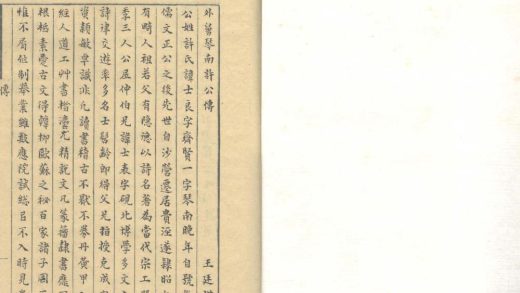 外曾琴南許公傳
王廷
公姓許氏諱士良字齊賢一字琴南晚年自號
儒文正公之後先世自沙營遷居費洼遂隷昭
有疇人祖若父有隱德以詩名著為當代宗工
季三人公居仲伯兄諱士表字硯北博學多文
詩律交遊率多名士髫齡即得父兄指授克成
資穎敏卓識非凡讀書稽古不獸不
經人道工艸書楷尤精就文凡篆籀隸書應
根柢素愛古文得韓柳歐蘇之秘百家諸子
惟不屑位制舉業雖數應院試然呂不入時見
傳